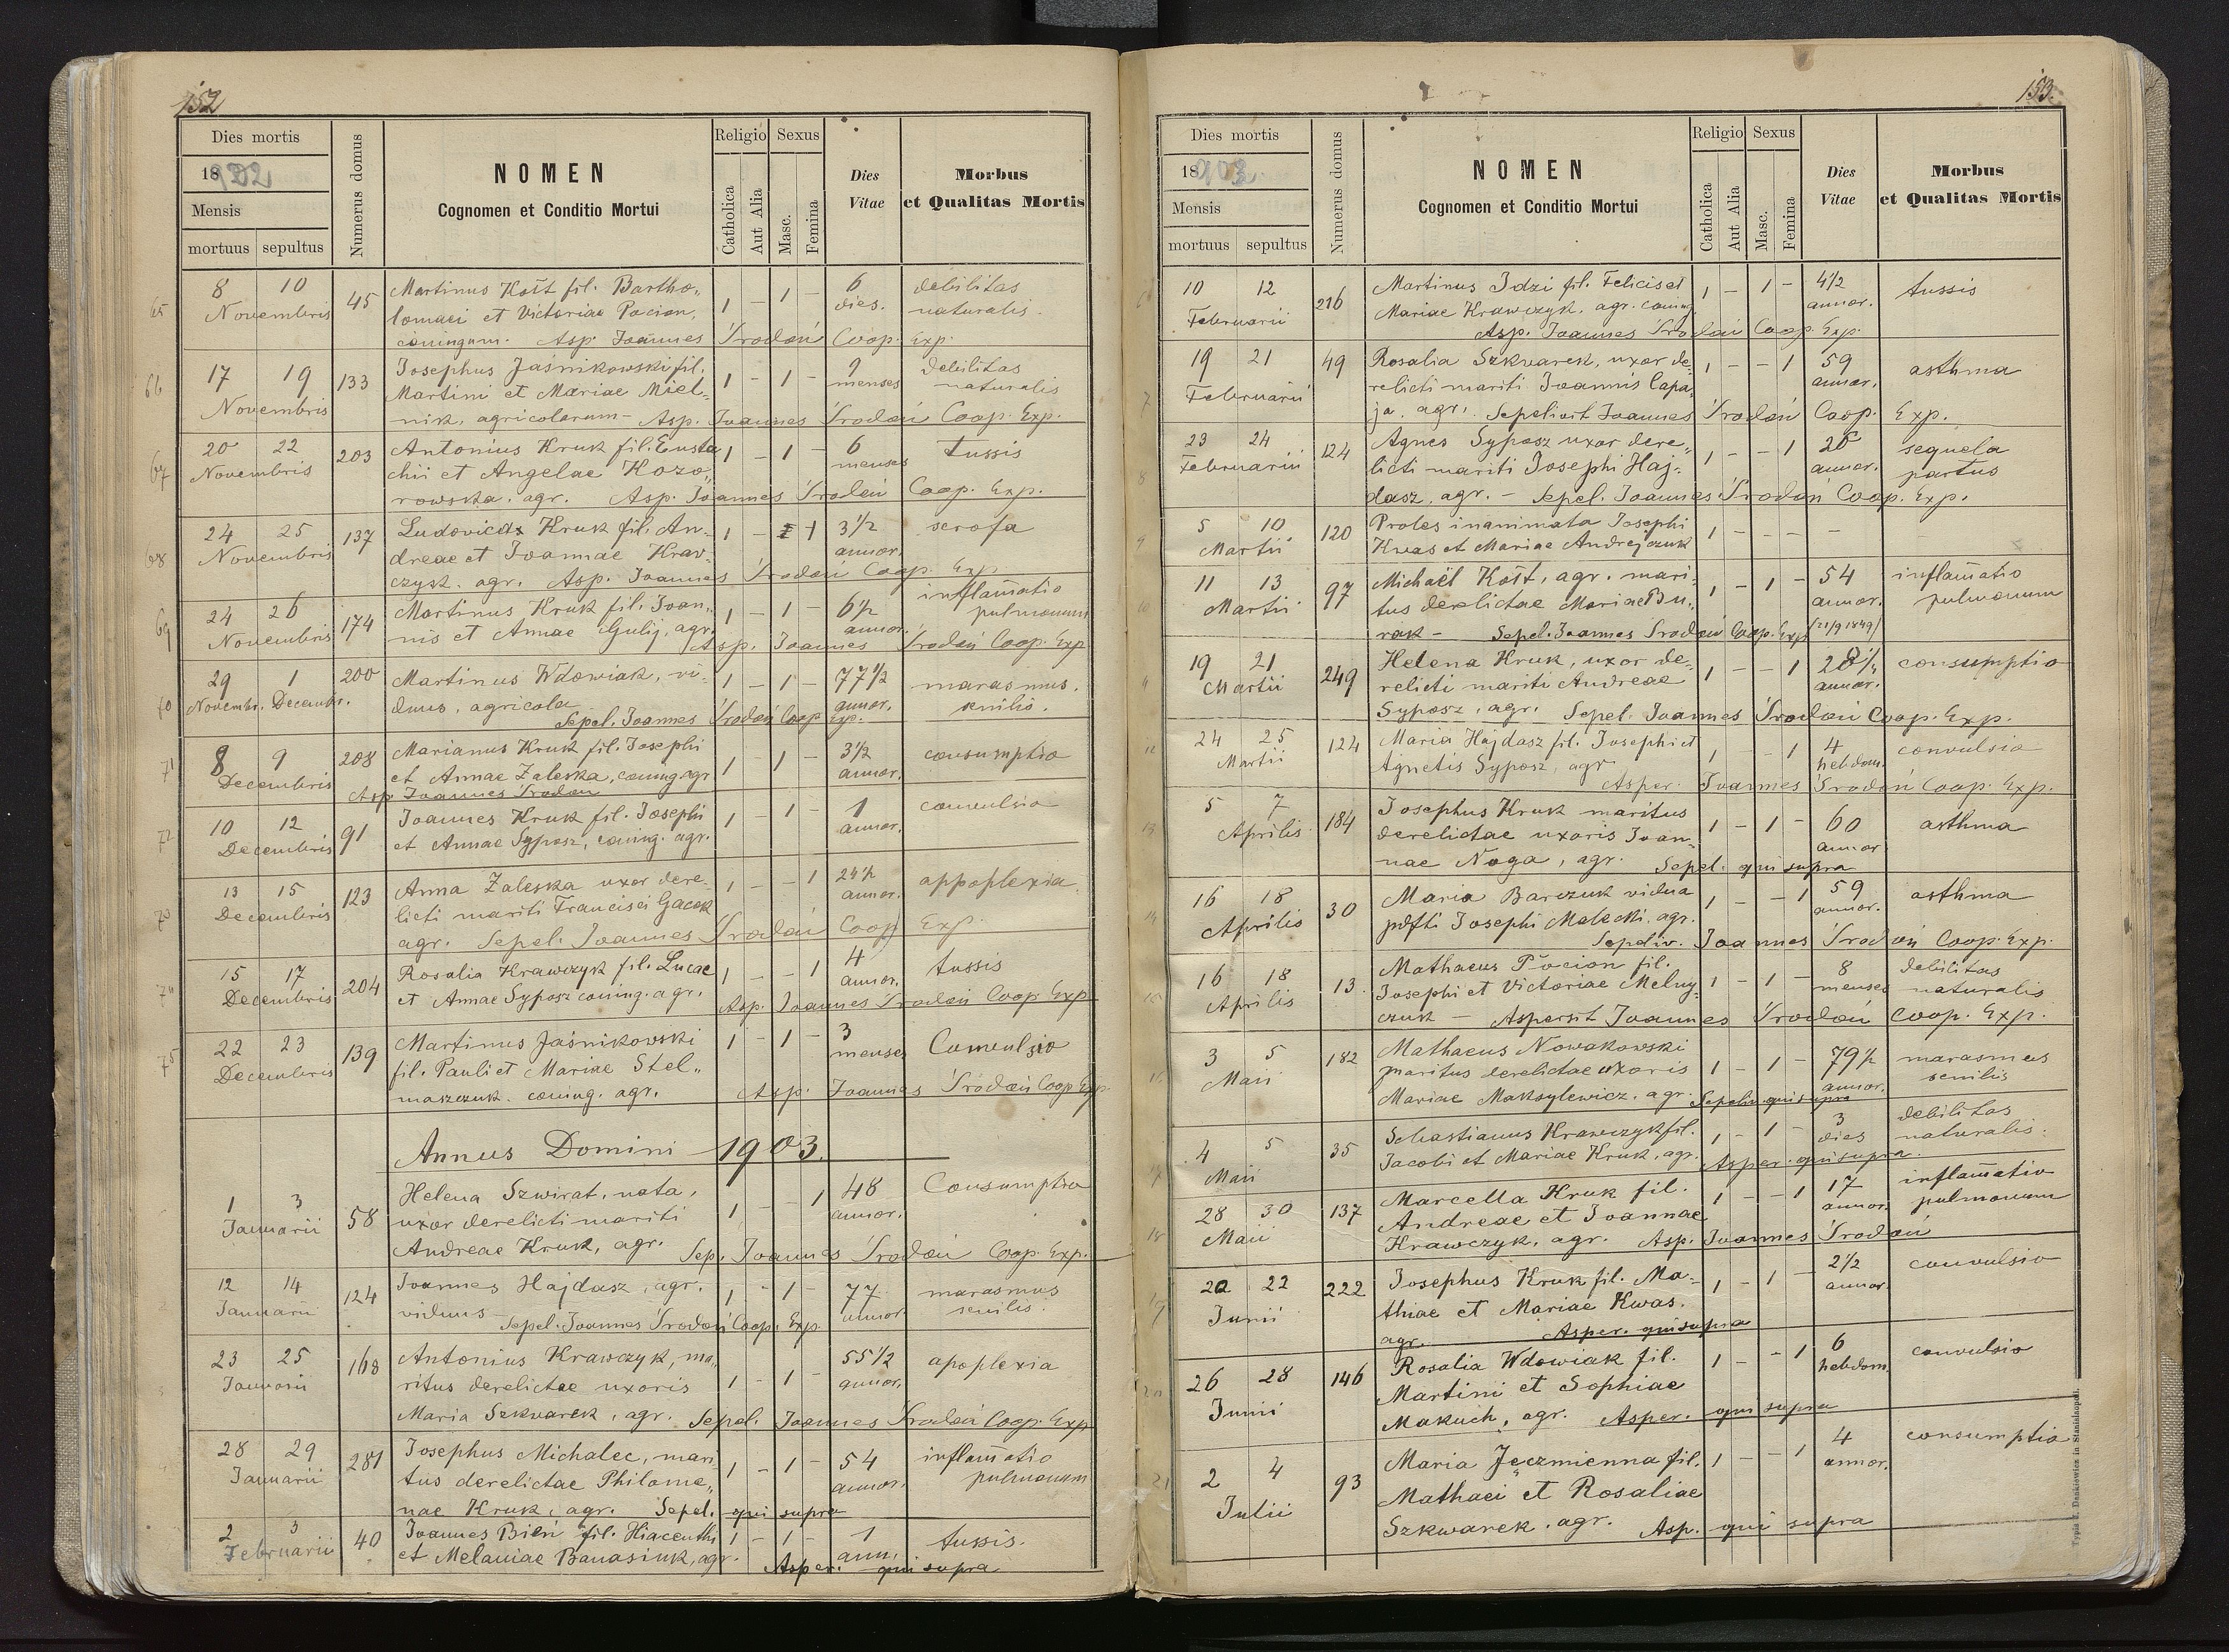 152
Dies mortis
1902
Mensis
mortuus sepultus
Numerus domus
NOMEN
Cognomen et Conditio Mortui
Religio
Catholica
Aut Alia
Sexus
Masc.
Femina
Dies Vitae
Morbus et Qualitas Mortis
65 8 10 Novembris 45 Martinus Kośt fil. Bartho„ 1 – 1 – 6 dies. debilitas naturalis.
lomaei et Victoriae Pocion,
coniugum. Asp. Joannes Środoń Coop. Exp.
66 17 19 Novembris 133 Josephus Jaśnikowski fil. 1 – 1 – 9 menses debilitas naturalis
Martini et Mariae Miel„
nik, agricolarum – Asp. Joannes Środoń Coop. Exp.
67 20 22 Novembris 203 Antonius Kruk fil. Eusta 1 – 1 – 6 menses tussis
chii et Angelae Kozo„
rowska. agr. Asp. Joannes Środoń Coop. Exp.
68 24 25 Novembris 137 Kruk fil. An„ 1 – 1 3½ annor. scrofa
dreae et Joannae Kraw„
czyk. agr. Asp. Joannes Środoń Coop. Exp.
69 24 26 Novembris 174 Martinus Kruk fil. Joan„ 1 – 1 – 6½ annor. inflam̄atio pulmonum
nis et Annae Gulij, agr.
Asp. Joannes Środoń Coop. Exp
29 Novembr. 1 Decembr. 200 Martinus Wdowiak, vi„ 1 – 1 – 77½ annor. marasmus senilis.
duus, agricola
Sepel. Joannes Środoń Coop Exp.
71 8 9 Decembris 208 Marianus Kruk fil. Josephi 1 – 1 – 3½ annor. consumptio
et Annae Zaleska, coniug. agr
Asp Joannes Środoń
72 10 12 Decembris 91 Joannes Kruk fil. Josephi 1 – 1 – 1 annor. convulsio
et Annae Syposz, coniug. agr.
13 15 Decembris 123 Anna Zaleska uxor dere„ 1 – – 1 24½ annor. appoplexia
licti mariti Francisci Gacek
agr. Sepel. Joannes Środoń Coop Exp.
74 15 17 Decembris 204 Rosalia Krawczyk fil. Lucae 1 – – 1 4 annor. tussis
et Annae Syposz coniug. agr.
Asp. Joannes Środoń Coop Exp
75 22 23 Decembris 139 Martinus Jaśnikowski 1 – 1 – 3 menses Convulsio
fil. Pauli et Mariae Stel„
maszczuk. coniug. agr. Asp. Joannes Środoń Coop Exp.
Annus Domini 1903.
1 3 Januarii 58 Helena Szwirat, nata, 1 – – 1 48 annor. Consumptio
uxor derelicti mariti
Andreae Kruk, agr. Sep. Joannes Środoń Coop. Exp.
12 14 Januarii 124 Joannes Hajdasz, agr. 1 – 1 – 77 annor marasmus senilis.
viduus – Sepel. Joannes Środoń Coop. Exp.
23 25 Januarii 168 Antonius Krawczyk, ma„ 1 – 1 – 55½ annor. apoplexia
ritus derelictae uxoris
Maria Szkwarek, agr. Sepel. Joannes Środoń Coop. Exp
28 29 Januarii 281 Josephus Michalec, mari 1 – 1 – 54 annor. inflam̄atio pulmonum
tus derelictae Philome„
nae Kruk, agr. Sepel. qui supra
2 3 Februarii 40 Joannes Bień fil. Hiacenthi 1 – 1 – 1 ann. tussis.
et Melaniae Banasiuk, agr.
Asper. qui supra
153.
Dies mortis
1903.
Mensis
mortuus sepultus
Numerus domus
NOMEN
Cognomen et Conditio Mortui
Religio
Catholica
Aut Alia
Sexus
Masc.
Femina
Dies Vitae
Morbus et Qualitas Mortis
10 12 Februarii 216 Martinus Idzi fil. Felicis et 1 – 1 – 4½ annor. tussis
Mariae Krawczyk. agr. coniug.
Asp. Joannes Środoń Coop. Exp.
7 19 21 Februarii 49 Rosalia Szkwarek, uxor de„ 1 – – 1 59 annor. asthma
relicti mariti Joannis Capa„
ja. agr. Sepelivit Joannes Środoń Coop. Exp.
8 23 24 Februarii 124 Agnes Syposz uxor dere„ 1 – – 1 26 annor. sequela partus
licti mariti Josephi Haj„
dasz, agr. – Sepel. Joannes Środoń Coop. Exp.
9 5 10 Martii 120 Proles inanimata Josephi 1 – – – –
Kwas et Mariae Andrejczuk
10 11 13 Martii 97 Michaël Kośt, agr. mari„ 1 – 1 – 54 annor. (21/9 1849) inflam̄atio pulmonum
tus derelictae Mariae Bu„
rak – Sepel. Joannes Środoń Coop. Exp
19 21 Martii 249 Helena Kruk, uxor de„ 1 – – 1 28½ annor. consumptio
relicti mariti Andreae
Syposz, agr. Sepel. Joannes Środoń Coop. Exp.
12 24 25 Martii 124 Maria Hajdasz fil. Josephi et 1 – – 1 4 hebdom. convulsio
Agnetis Syposz, agr
Asper. Joannes Środoń Coop. Exp.
13 5 7 Aprilis 184 Josephus Kruk maritus 1 – 1 – 60 annor asthma
derelictae uxoris Joan„
nae Noga, agr. Sepel. qui supra
14 16 18 Aprilis 30 Maria Barczuk vidua 1 – – 1 59 annor. asthma
pdfti Josephi Malecki. agr.
Sepeliv. Joannes Środoń Coop. Exp.
15 16 18 Aprilis 13. Mathaeus Pocion fil. 1 – 1 – 8 menses debilitas naturalis
Josephi et Victoriae Melny„
czuk – Aspersit Joannes Środoń Coop. Exp.
16 3 5 Maii 182 Mathaeus Nowakowski 1 – 1 – 79½ annor. marasmus senilis
maritus derelictae uxoris
Mariae Maksylewicz. agr. Sepeliv. qui supra
17 4 5 Maii 35 Sebastianus Krawczyk fil. 1 – 1 – 3 dies debilitas naturalis.
Jacobi et Mariae Kruk, agr. Asper. qui supra.
18 28 30 Maii 137 Marcella Kruk fil. 1 – – 1 17 annor. inflam̄atio pulmonum
Andreae et Joannae
Krawczyk, agr. Asp. Joannes Środoń
19 20 22 Junii 222 Josephus Kruk fil. Ma„ 1 – 1 – 2½ annor. convulsio
thiae et Mariae Kwas.
agr. Asper. qui supra
20 26 28 Junii 146 Rosalia Wdowiak fil. 1 – – 1 6 hebdom. convulsio
Martini et Sophiae
Makuch, agr. Asper. qui supra
21 2 4 Julii 93 Maria Jęczmienna fil. 1 – – 1 4 annor. consumptio
Mathaei et Rosaliae
Szkwarek. agr. Asp. qui supra